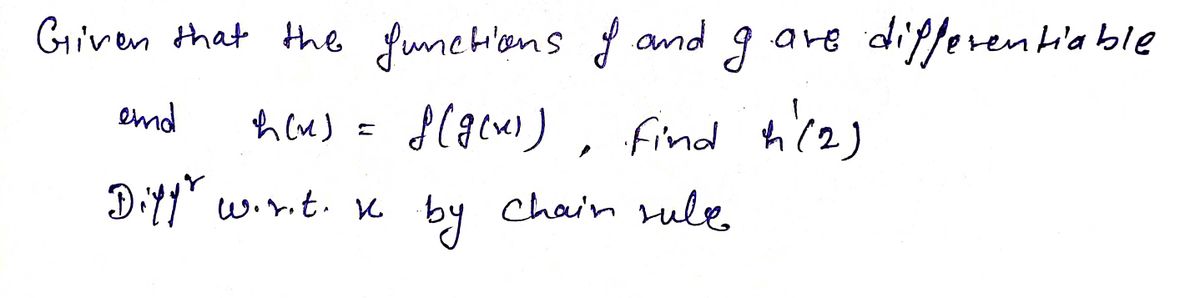 Given that the functions f and g are differentiable
and h(x) = f(g(x)) , find h'(2)
Diffʳ w.r.t. x by chain rule